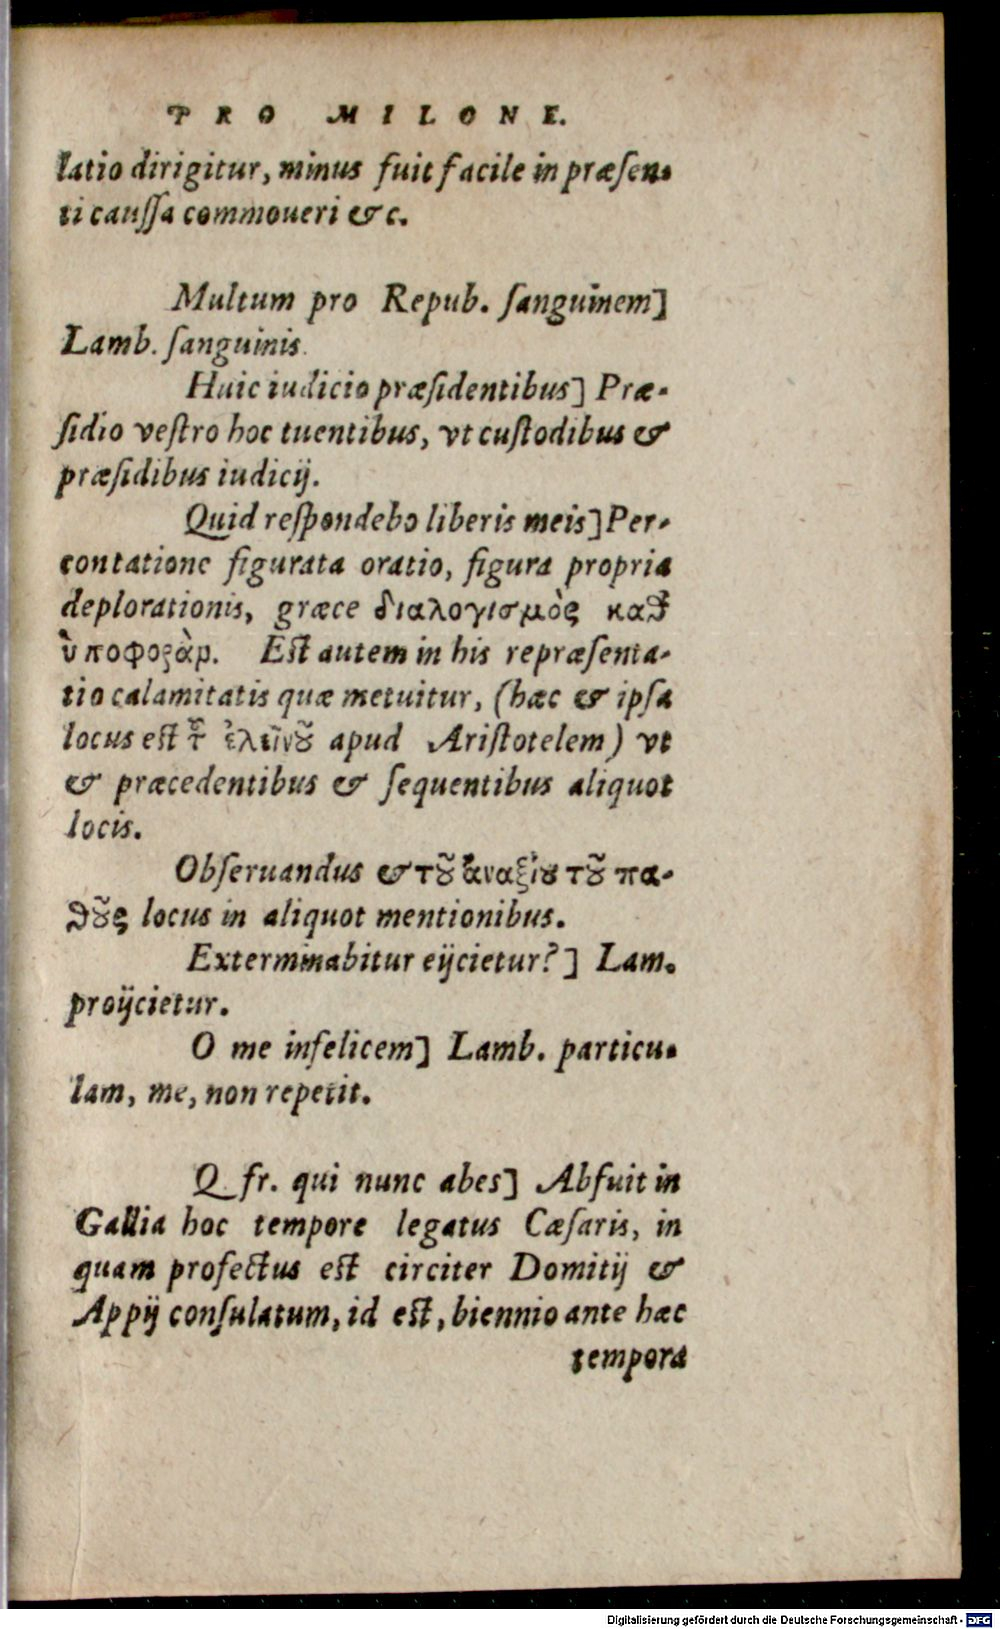 PRO MILONE.
latio dirigitur, minus fuit facile in præsen-
ti caussa commoueri & c.
Multum pro Repub. sanguinem]
Lamb. sanguinis.
Huic iudicio præsidentibus] Præ-
sidio vestro hoc tuentibus, vt custodibus &
præsidibus iudicij.
Quid respondebo liberis meis] Per-
contatione figurata oratio, figura propria
deplorationis, græce διαλογισμὸς καθ
ὑποφορὰν. Est autem in his repræsenta-
tio calamitatis quæ metuitur, (hæc & ipsa
locus est τοῦ ἐλεεινοῦ apud Aristotelem) vt
& præcedentibus & sequentibus aliquot
locis.
Obseruandus & τοῦ ἀναξίου τοῦ πα-
θοῦς locus in aliquot mentionibus.
Exterminabitur eijcietur?] Lam.
proijcietur.
O me infelicem] Lamb. particu-
lam, me, non repetit.
Q. fr. qui nunc abes] Abfuit in
Gallia hoc tempore legatus Cæsaris, in
quam profectus est circiter Domitij &
Appij consulatum, id est, biennio ante hæc
tempora
Digitalisierung gefördert durch die Deutsche Forschungsgemeinschaft - DFG